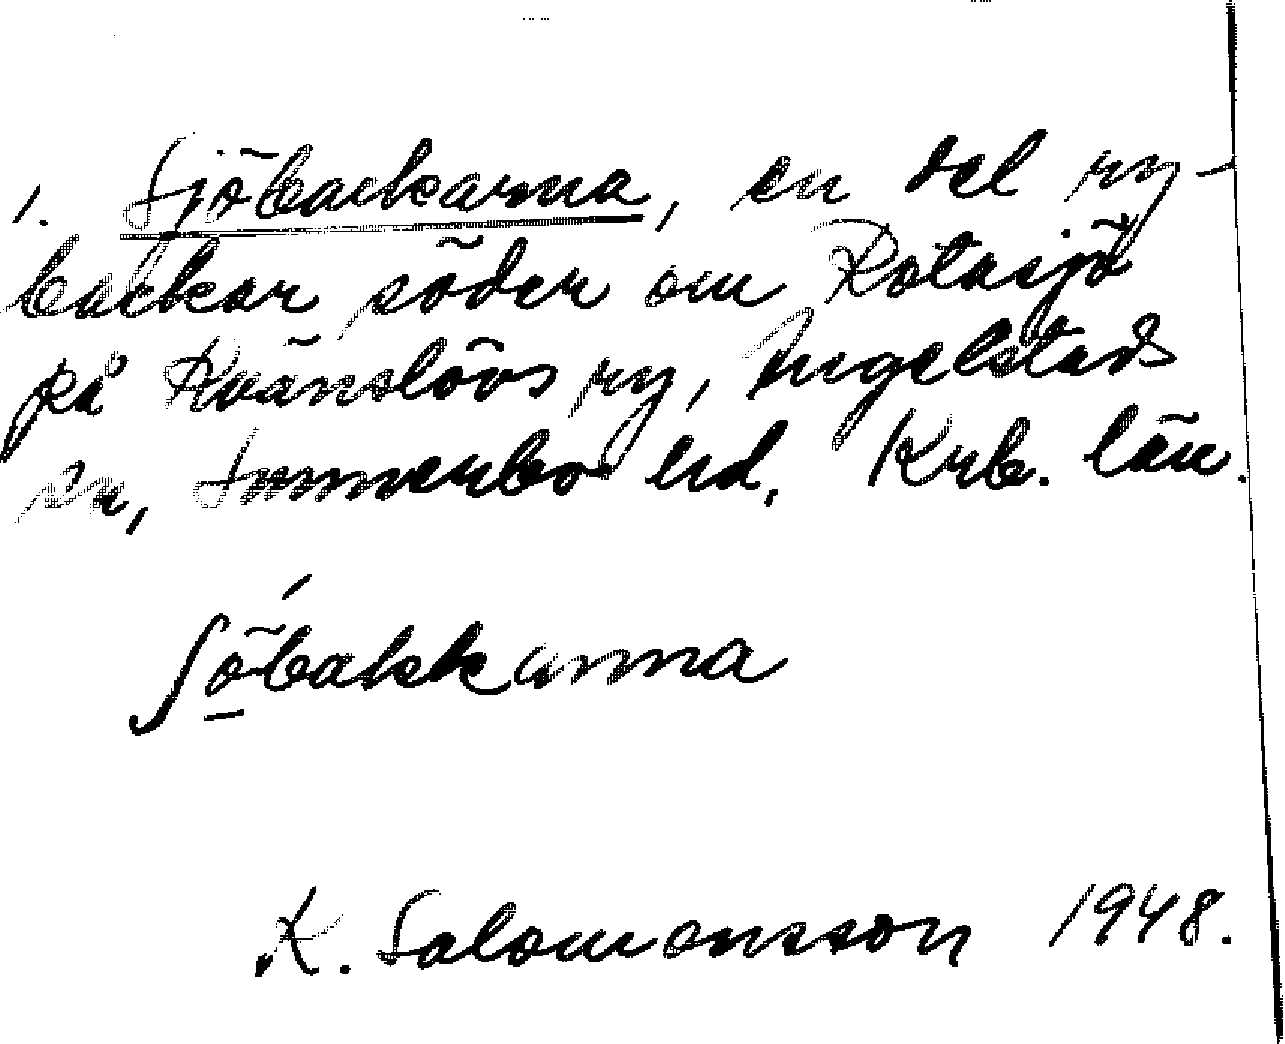 1. Sjöbackarna, en del ry-
backar söder om Rotasjö
på Kvänslövs ry, Ängelstads
sn, Sunnerbo hd, Krb. län.
ʃöbakkanna
K. Salomonsson 1948.